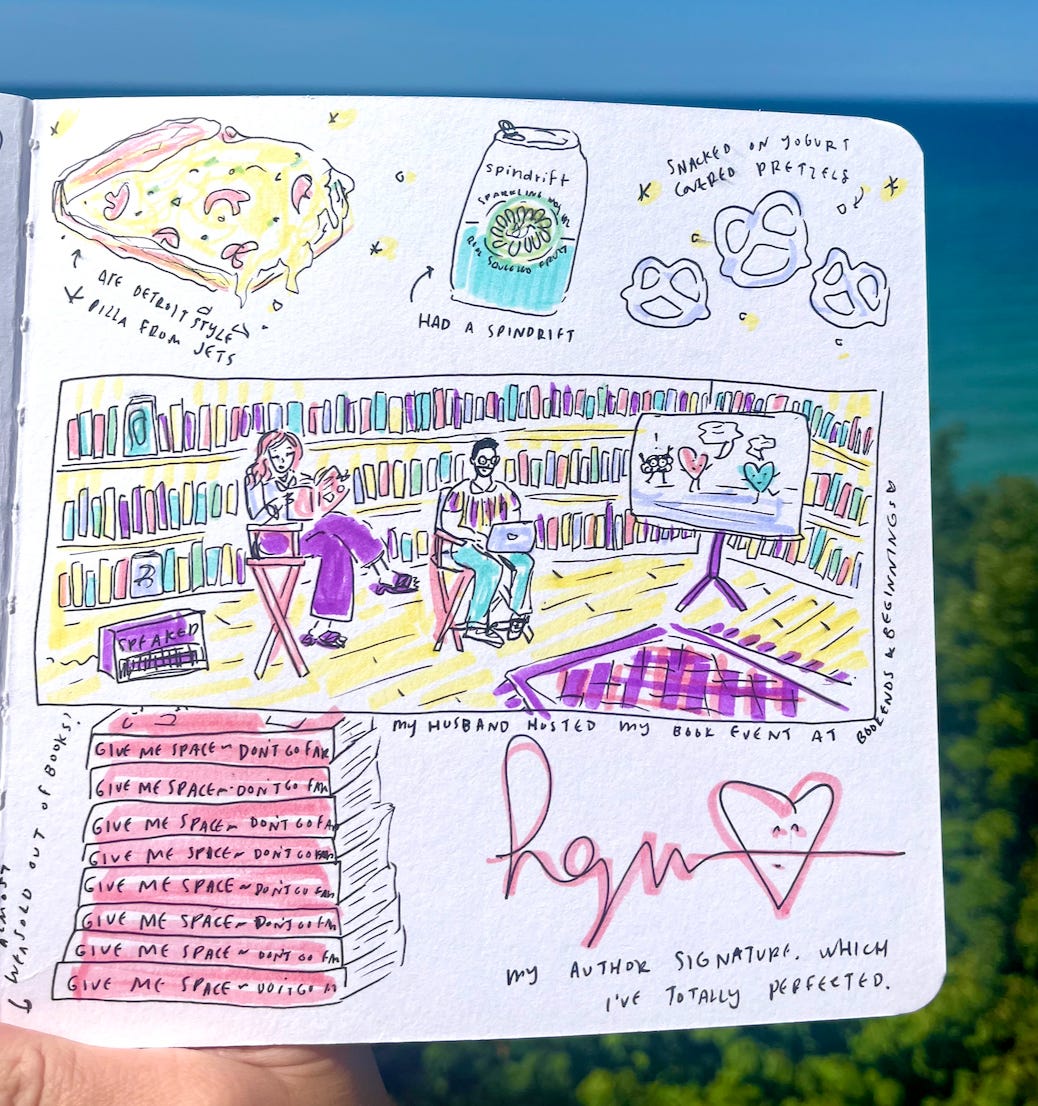 ATE DETROIT STYLE
PIZZA FROM JETS
spindrift
SPARKLING
REAL SQUEEZED FRUIT
HAD A SPINDRIFT
SNACKED ON YOGURT
COVERED PRETZELS
SPEAKER
MY HUSBAND HOSTED MY BOOK EVENT AT
BOOKENDS & BEGINNINGS
ALMOST
WE SOLD OUT OF BOOKS!
GIVE ME SPACE ~ DON'T GO FAR
GIVE ME SPACE ~ DON'T GO FAR
GIVE ME SPACE ~ DON'T GO FAR
GIVE ME SPACE ~ DON'T GO FAR
GIVE ME SPACE ~ DON'T GO FAR
GIVE ME SPACE ~ DON'T GO FAR
GIVE ME SPACE ~ DON'T GO FAR
GIVE ME SPACE ~ DON'T GO
MY AUTHOR SIGNATURE. WHICH
I'VE TOTALLY PERFECTED.